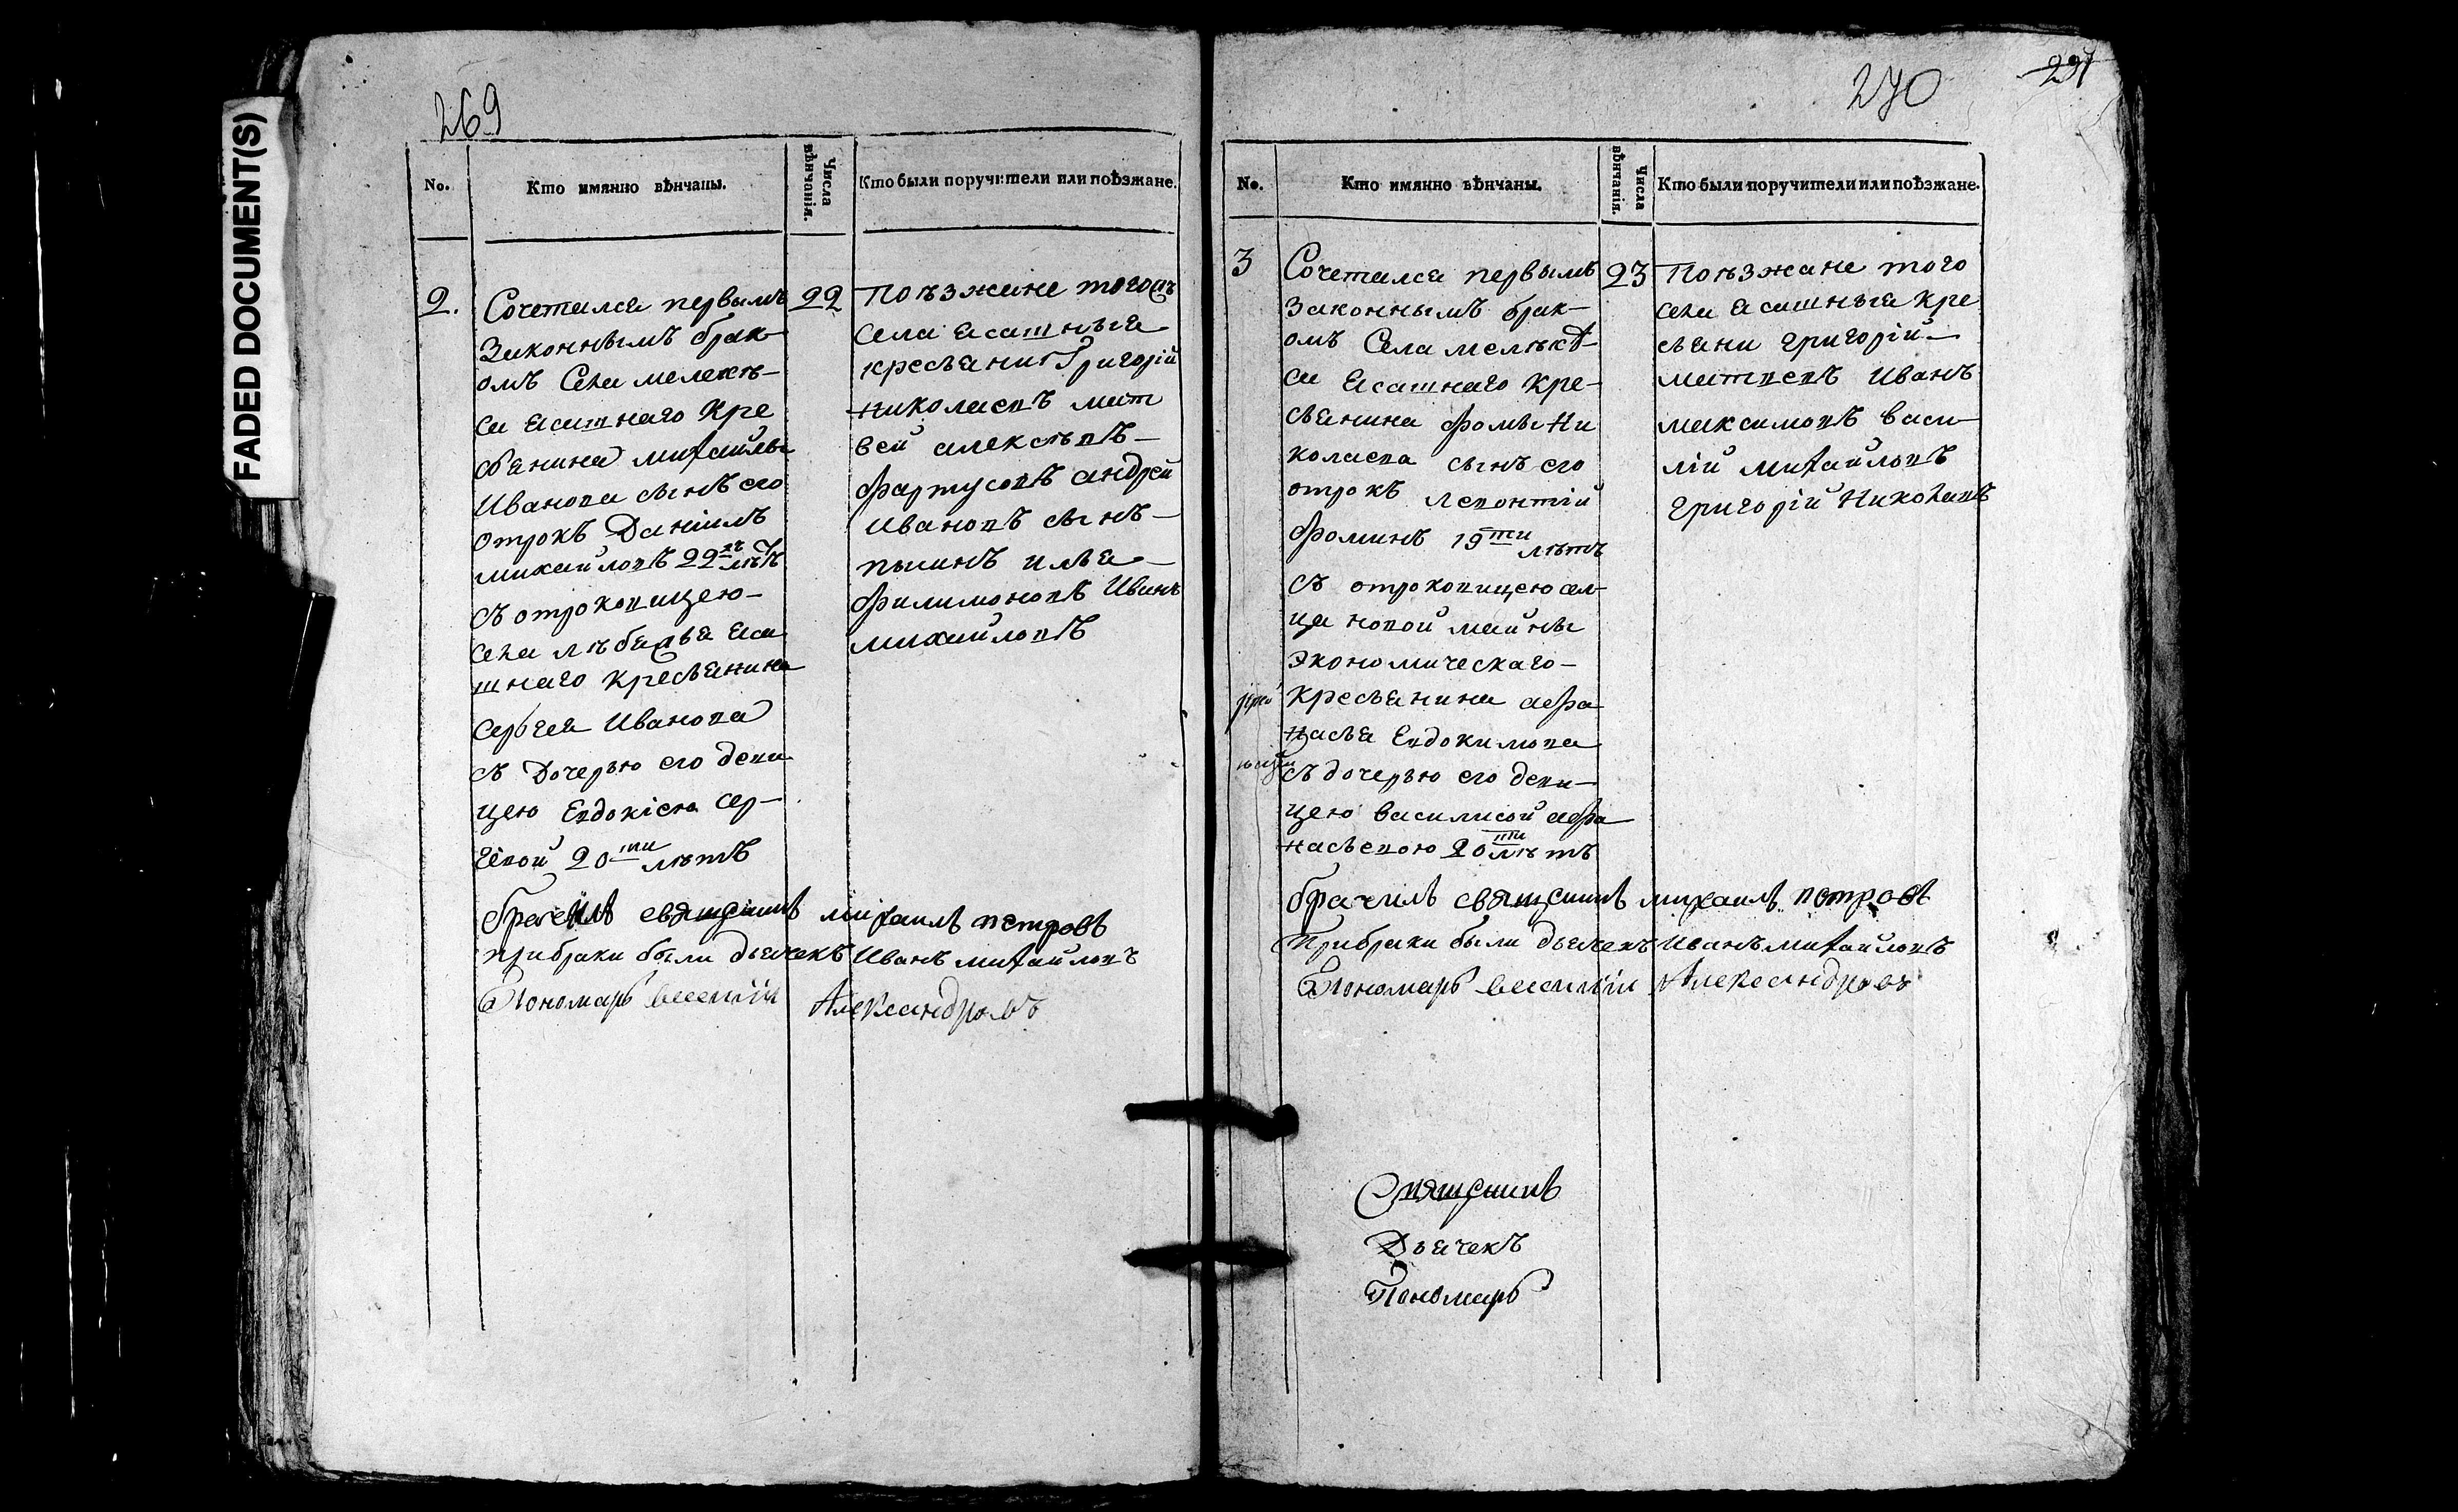 FADED DOCUMENT(S)
269
No.
Кто имянно вѣнчаны.
Числа вѣнчанія.
Кто были поручители или поѣзжане.
2.
Сочетался первымъ
Законнымъ брак-
омъ Села мелекѣ-
са ясашнаго кре
сьянина михайлы
Иванова сынъ его
отрокъ Даніилъ
михайловъ 22хъ лѣтъ
съ отроковицею-
села лѣбяжья яса
шнаго кресьянина
Сергея Иванова
съ Дочерью его деви
цею Евдокіею Сер-
геевой 20ти лѣтъ
22
Поѣзжане тогожъ
села ясашныя
кресьяни Григорій
николаевъ мат
вей алексѣевъ-
фартусовъ андрей
Ивановъ сынъ-
илья-
филимоновъ Иванъ
михайловъ
брачилъ священникъ михаилъ петровъ
при браки были дьячекъ Иванъ михайловъ
Пономарь василій Александровъ
270
231
No.
Кто имянно вѣнчаны.
Числа вѣнчанія.
Кто были поручители или поѣзжане.
3
Сочетался первымъ
Законнымъ брак-
омъ Села мелѣкѣ-
са ясашнаго кре-
сьянина фомы Ни
колаева сынъ его
отрокъ леонтій
фоминъ 19ти лѣтъ
съ отроковицею сел-
ца новой майны
экономическаго-
кресьянина афа
насья Евдокимова
съ дочерью его деви-
цею василисой афа
насьевою 20ти лѣтъ
23
Поѣзжане того
села ясашныя кре
сьяни григорій-
матвеевъ Иванъ
максимовъ васи-
лій михайловъ
григорій Николаевъ
брачилъ священникъ михаилъ петровъ
При браки были дьячекъ Иванъ михайловъ
Пономарь василіи Александровъ
Священникъ
Дьячекъ
Пономарь